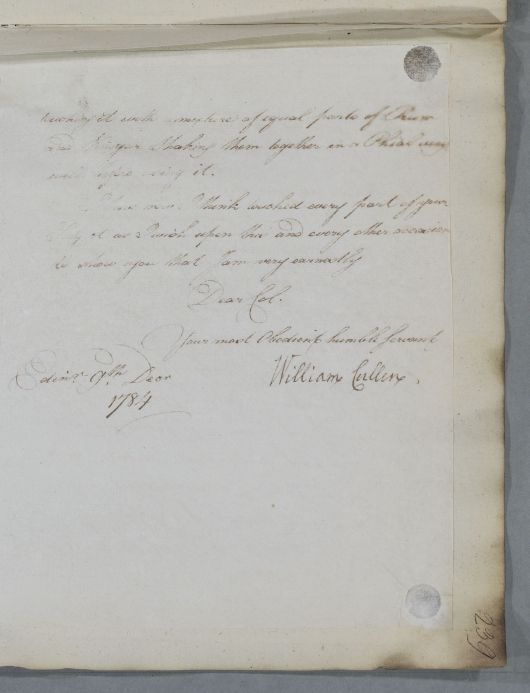 with a mixture of equal parts of Rum
and Vinegar Shaking them together in a Phial very
well before using it.
I have now I think touched every part of your
as I wish upon this and every other occasion
to show you that I am very earnestly
Dear Col.
Your most Obedient humble Servant
Edinr. 9th. Decr
William Cullen.
1784
239